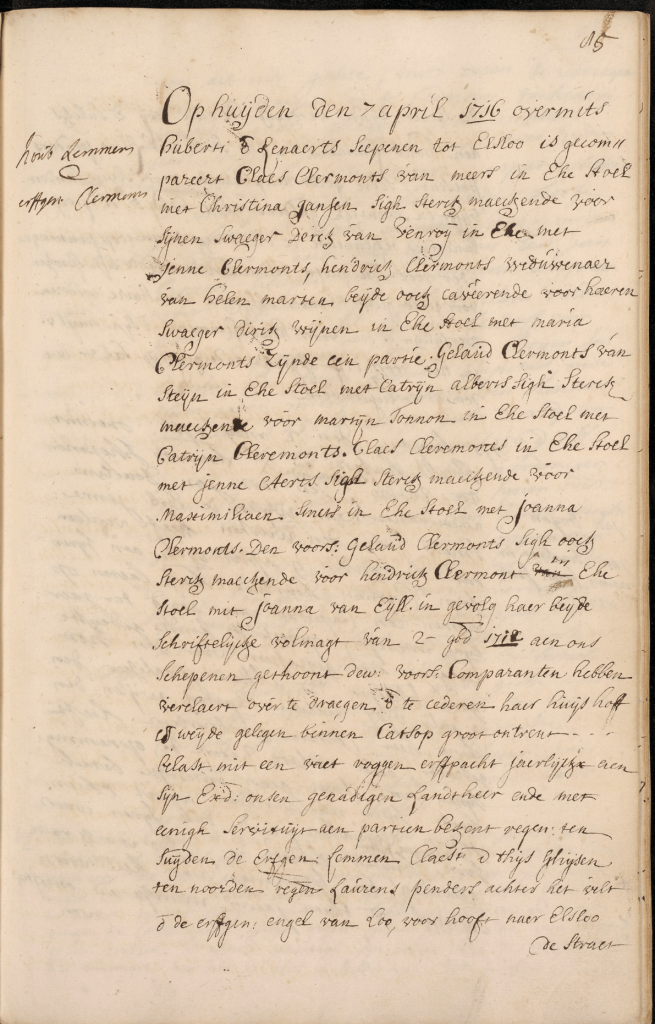 15
Op huijden den 7 april 1716 overmits
houb Lemmens
erffgen Clermonts
Huberti & Lenaerts Scepenen tot Elsloo is gecom=
pareert Claes Clermonts van meers in Ehe Stoel
met Christina Jansen sigh sterck maeckende voor
sijnen Swaeger Derck van Venroij in Ehe met
Jenne Clermonts, hendrick Clermonts weduwenaer
van helen marten beijde oock caveerende voor haeren
Swaeger dirck wijnen in Ehe Stoel met maria
Clermonts Zijnde een partie. Gelaud Clermonts van
Steijn in Ehe Stoel met Catrijn alberts sigh sterck
maeckende voor martijn Tonnon in Ehe Stoel met
Catrijn Cleremonts. Claes Cleremonts in Ehe Stoel
met jenne Aerts sigh sterck maeckende voor
Maximiliaen Smets in Ehe Stoel met Joanna
Clermonts. Den voors: Gelaud Clermonts sigh oock
sterck maeckende voor hendrick Clermont in Ehe
Stoel met Joanna van Eijll. in gevolg haer beijde
schriftelijcke volmagt van 2- 1712 aen ons
Schepenen gethoont dew: voors: Comparanten hebben
verclaert over te draegen & te cederen haer huijs hoff
& weijde gelegen binnen Catsop groot ontrent - - -
belast mit een vaet roggen erffpacht jaerlijckx aen
sijn Exc: onsen genädigen Landtheer ende met
eenigh Servituijt aen partien bekent regen: ten
Suijden de Erfgen: Lemmen Claess & thijs Ghijsen
ten noorden regen Laurens penders achter het velt
& de erffgen: engel van Loo, voor hooft naer Elsloo
de Straet